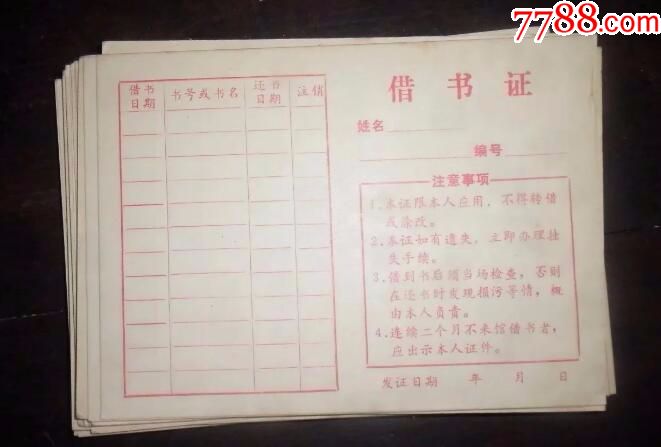 7788.com
借书
日期
书号或书名
还书
日期
注销
借书证
姓名
编号
注意事项
1.本证限本人应用，不得转借
或涂改。
2.本证如有遗失，立即办理挂
失手续。
3.借到书后须当场检查，否则
在还书时发现损污等情，概
由本人负责。
4.连续二个月不来馆借书者，
应出示本人证件。
发证日期 年 月 日